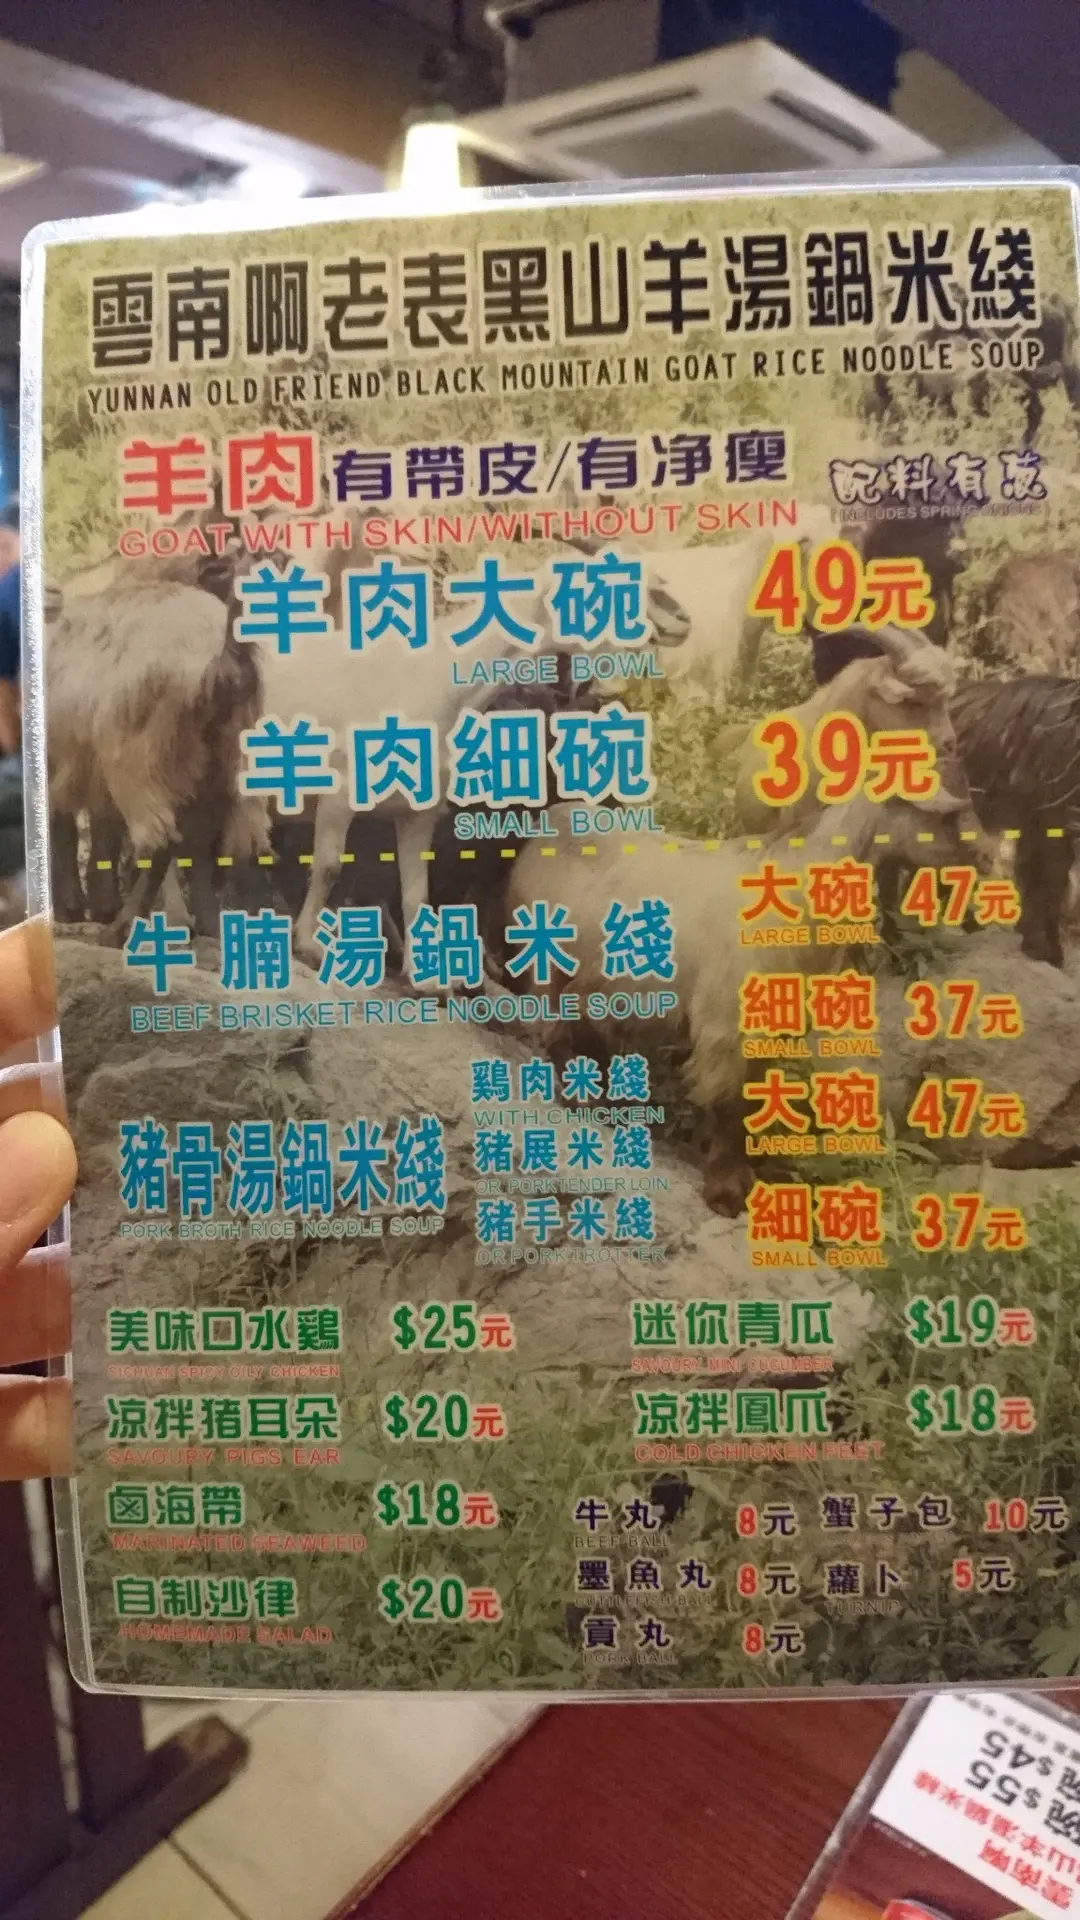 雲南啊老表黑山羊湯鍋米綫
YUNNAN OLD FRIEND BLACK MOUNTAIN GOAT RICE NOODLE SOUP
羊肉 有帶皮/有净瘦 配料有葱
GOAT WITH SKIN/WITHOUT SKIN INCLUDES SPRING ONIONS
羊肉大碗 49元
LARGE BOWL
羊肉細碗 39元
SMALL BOWL
牛腩湯鍋米綫 大碗 47元
BEEF BRISKET RICE NOODLE SOUP LARGE BOWL
細碗 37元
SMALL BOWL
豬骨湯鍋米綫
PORK BROTH RICE NOODLE SOUP
鷄肉米綫 大碗 47元
WITH CHICKEN LARGE BOWL
豬展米綫
OR PORK TENDERLOIN
豬手米綫 細碗 37元
OR PORK TROTTER SMALL BOWL
美味口水鷄 $25元 迷你青瓜 $19元
SICHUAN SPICY OILY CHICKEN SAVOURY MINI CUCUMBER
凉拌猪耳朵 $20元 凉拌鳳爪 $18元
SAVOURY PIGS EAR COLD CHICKEN FEET
鹵海帶 $18元
MARINATED SEAWEED
自制沙律 $20元
HOMEMADE SALAD
牛丸 8元 蟹子包 10元
BEEF BALL
墨魚丸 8元 蘿卜 5元
CUTTLEFISH BALL TURNIP
貢丸 8元
PORK BALL
雲南啊
山羊湯鍋米線
碗 $55
碗 $45